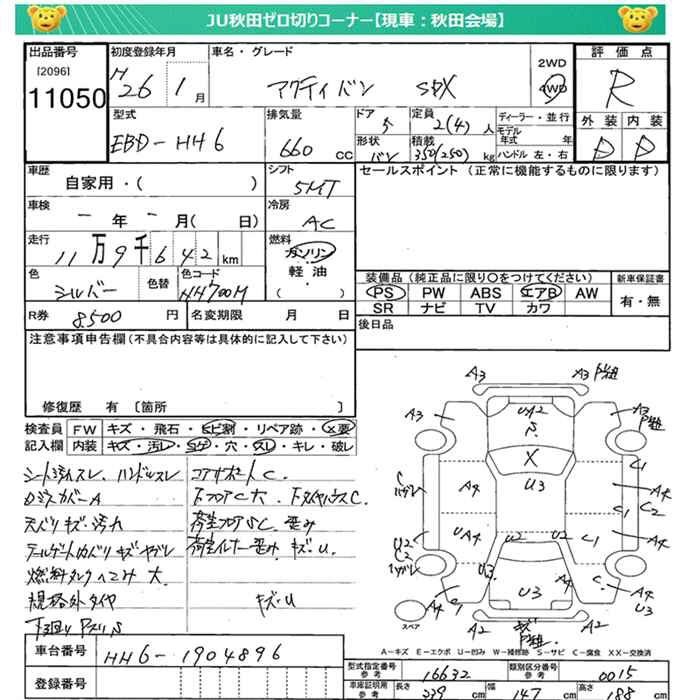 JU秋田ゼロ切りコーナー【現車：秋田会場】
出品番号 初度登録年月 車名・グレード 評価点
[2096]
11050
H26 1月 アクティバン SDX 2WD 4WD R
外装 内装
D D
型式 排気量 ドア 定員 ディーラー・並行
EBD-HH6 660cc 5 2(4)人 モデル年式 年
形状 積載 ハンドル 左・右
バン 350(250)kg
車歴 シフト セールスポイント（正常に機能するものに限ります）
自家用・( ) 5MT
車検 冷房
ー年ー月( 日) AC
走行 燃料
11万9千642km ガソリン
軽油
( )
色 色替 色コード 装備品（純正品に限り○をつけてください） 新車保証書
シルバー NH700M PS PW ABS エアB AW 有・無
SR ナビ TV カワ
R券 8500円 名変期限 月 日 後日品
注意事項申告欄（不具合内容等は具体的に記入して下さい）
修復歴 有 〔箇所 〕
検査員 FW キズ・飛石・ヒビ割・リペア跡・X要
記入欄 内装 キズ・汚レ・コゲ・穴・スレ・キレ・破レ
シート汚れスレ、ハンドルスレ コアサポートC.
Dミラーカバー A 下フロアC大、下タイヤハウスC.
天バリキズ・汚れ 荷室フロアS.C. 歪み
テールゲート内バリキズヤブレ 荷室インナー歪み、キズ・U.
燃料タンクヘこみ 大
規格外タイヤ キズ・U
下回りPズリ、S
A3 A3 P粗
A3 UA2 A3 P粗
S
X
C ハガレ A4 U3 C1 A4 C2
C1
U2 C2 ハガレ UA4 U2 U2 C1 A4
U3 A4 C
A4 C1 U3 A4 U3
A2 キズ P粗 A4
スペア
A－キズ E－エクボ U－凹み W－補修跡 S－サビ C－腐食 XX－交換済
車台番号 HH6-1904896
登録番号
型式指定番号 参考 16632 類別区分番号 参考 0015
車庫証明用 参考 長さ 339cm 幅 147cm 高さ 188cm